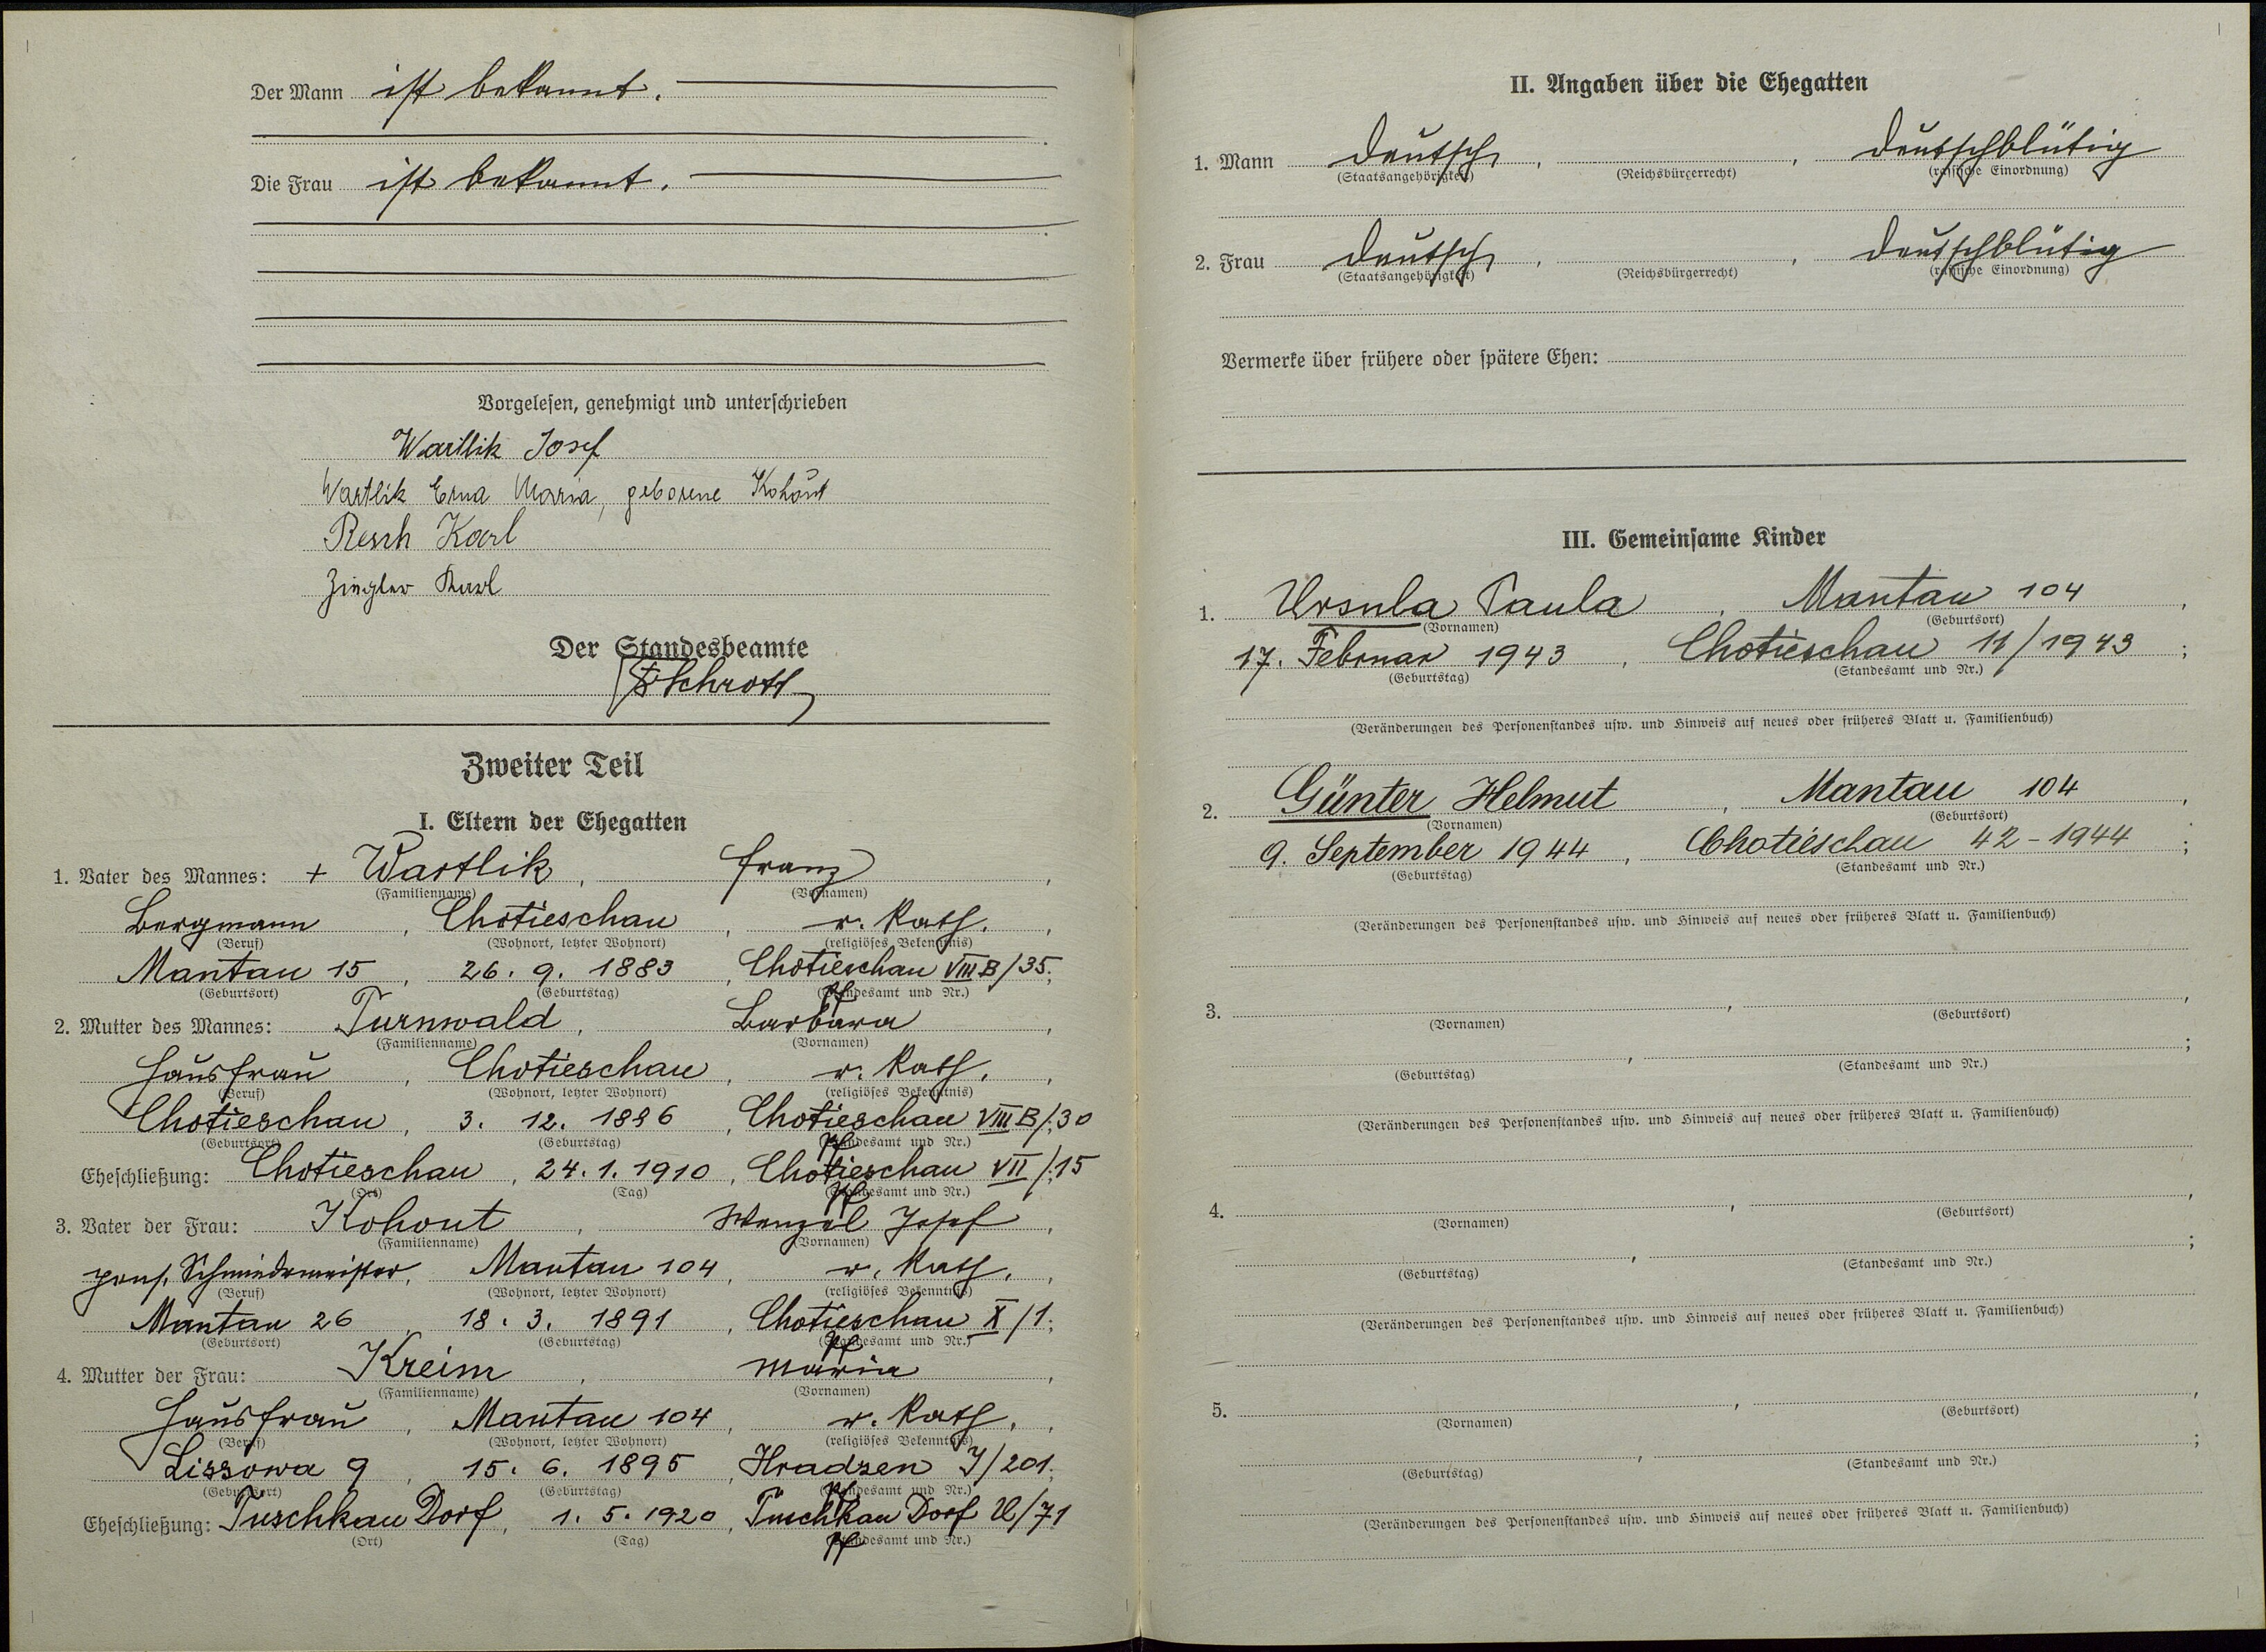 Der Mann ist bekannt.
Die Frau ist bekannt.
Vorgelesen, genehmigt und unterschrieben
Wartlik Josef
Wartlik Erna Maria, geborene Kohout
Resch Karl
Ziegler Karl
Der Standesbeamte
Schrott
Zweiter Teil
I. Eltern der Ehegatten
1. Vater des Mannes: + Wartlik, Franz,
(Familienname) (Vornamen)
Bergmann, Chotieschau, r. kath.,
(Beruf) (Wohnort, letzter Wohnort) (religiöses Bekenntnis)
Mantau 15, 26. 9. 1883, Chotieschau VIII B/35;
(Geburtsort) (Geburtstag) (Standesamt und Nr.)
2. Mutter des Mannes: Turnwald, Barbara,
(Familienname) (Vornamen)
Hausfrau, Chotieschau, r. kath.,
(Beruf) (Wohnort, letzter Wohnort) (religiöses Bekenntnis)
Chotieschau, 3. 12. 1886, Chotieschau VIII B/30
(Geburtsort) (Geburtstag) (Standesamt und Nr.)
Eheschließung: Chotieschau, 24. 1. 1910, Chotieschau VII/15
(Ort) (Tag) (Standesamt und Nr.)
3. Vater der Frau: Kohout, Wenzel Josef,
(Familienname) (Vornamen)
pens. Schmiedemeister, Mantau 104, r. kath.,
(Beruf) (Wohnort, letzter Wohnort) (religiöses Bekenntnis)
Mantau 26, 18. 3. 1891, Chotieschau X/1;
(Geburtsort) (Geburtstag) (Standesamt und Nr.)
4. Mutter der Frau: Kreim, Maria,
(Familienname) (Vornamen)
Hausfrau, Mantau 104, r. kath.,
(Beruf) (Wohnort, letzter Wohnort) (religiöses Bekenntnis)
Lissowa 9, 15. 6. 1895, Hradzen I/201;
(Geburtsort) (Geburtstag) (Standesamt und Nr.)
Eheschließung: Tuschkau Dorf, 1. 5. 1920, Tuschkau Dorf /71
(Ort) (Tag) (Standesamt und Nr.)
II. Angaben über die Ehegatten
1. Mann deutsch, , deutschblütig
(Staatsangehörigkeit) (Reichsbürgerrecht) (rassische Einordnung)
2. Frau deutsch, , deutschblütig
(Staatsangehörigkeit) (Reichsbürgerrecht) (rassische Einordnung)
Vermerke über frühere oder spätere Ehen:
III. Gemeinsame Kinder
1. Ursula Paula, Mantau 104,
(Vornamen) (Geburtsort)
17. Februar 1943, Chotieschau 11/1943;
(Geburtstag) (Standesamt und Nr.)
(Veränderungen des Personenstandes usw. und Hinweis auf neues oder früheres Blatt u. Familienbuch)
2. Günter Helmut, Mantau 104,
(Vornamen) (Geburtsort)
9. September 1944, Chotieschau 42-1944;
(Geburtstag) (Standesamt und Nr.)
(Veränderungen des Personenstandes usw. und Hinweis auf neues oder früheres Blatt u. Familienbuch)
3. , ,
(Vornamen) (Geburtsort)
, ;
(Geburtstag) (Standesamt und Nr.)
(Veränderungen des Personenstandes usw. und Hinweis auf neues oder früheres Blatt u. Familienbuch)
4. , ,
(Vornamen) (Geburtsort)
, ;
(Geburtstag) (Standesamt und Nr.)
(Veränderungen des Personenstandes usw. und Hinweis auf neues oder früheres Blatt u. Familienbuch)
5. , ,
(Vornamen) (Geburtsort)
, ;
(Geburtstag) (Standesamt und Nr.)
(Veränderungen des Personenstandes usw. und Hinweis auf neues oder früheres Blatt u. Familienbuch)